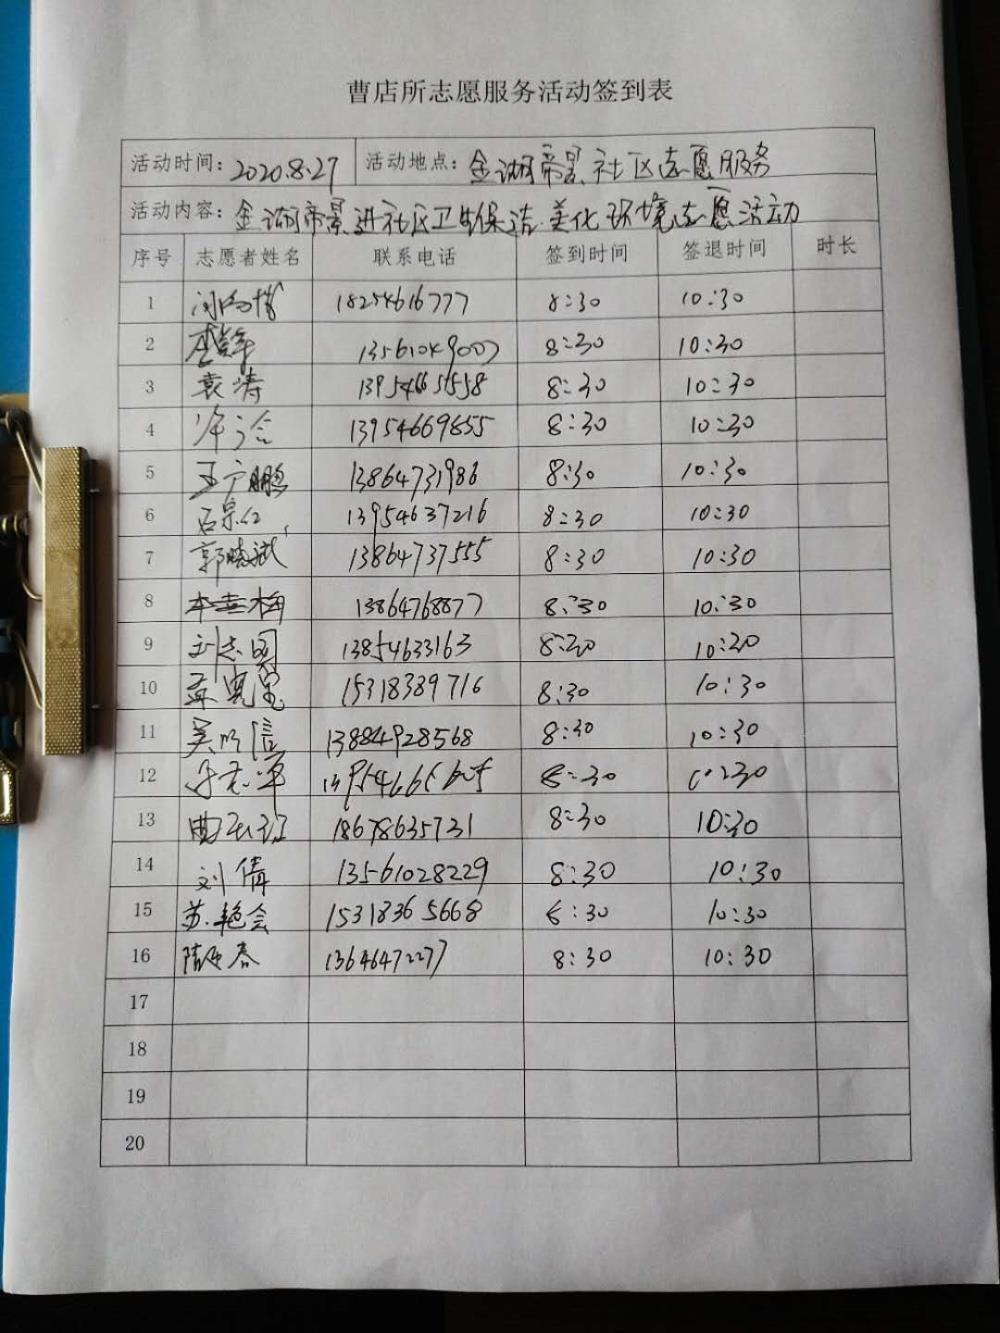 曹店所志愿服务活动签到表
活动时间: 2020.8.27 活动地点: 金湖帝景社区志愿服务
活动内容: 金湖帝景进社区卫生保洁.美化环境志愿活动
序号 志愿者姓名 联系电话 签到时间 签退时间 时长
1 18254616777 8:30 10:30
2 13561049007 8:30 10:30
3 袁涛 13954651558 8:30 10:30
4 13954669855 8:30 10:30
5 王广鹏 13864731986 8:30 10:30
6 13954637216 8:30 10:30
7 郭晓斌 13864737555 8:30 10:30
8 13864768877 8:30 10:30
9 刘志国 13854633163 8:20 10:20
10 15318389716 8:30 10:30
11 吴明信 13884928568 8:30 10:30
12 8:30
13 18678635731 8:30 10:30
14 刘倩 13561028229 8:30 10:30
15 苏艳会 15318365668 8:30 10:30
16 13646472277 8:30 10:30
17
18
19
20